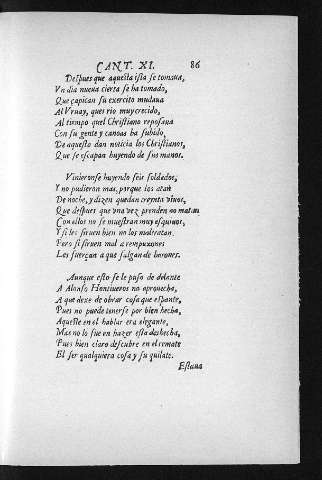 CANT. XI. 86
Despues que aquesta isla se tomaua,
Vn dia nueua cierta se ha tomado,
Que çapican su exercito mudaua
Al Vruay, ques rio muy crecido,
Al tiempo quel Christiano reposaua
Con su gente y canoas ha subido,
De aquesto dan noticia los Christianos,
Que se escapan huyendo de sus manos.
Vinieronse huyendo seis soldados,
Y no pudieron mas, porque los atan
De noche, y dizen quedan treynta viuos,
Que despues que vna vez prenden no matan
Con ellos no se muestran muy esquiuos,
Y si les siruen bien no los maltratan.
Pero si siruen mal a rempuxones
Les fuerçan a que salgan de harones.
Aunque esto se le puso de delante
A Alonso Hontiueros no aprouecha,
A que dexe de obrar cosa que espante,
Pues no puede tenerse por bien hecha,
Aqueste en el hablar era elegante,
Mas no lo fue en hazer esta deshecha,
Pues bien claro descubre en el remate
El ser qualquiera cosa y su quilate.
Estaua